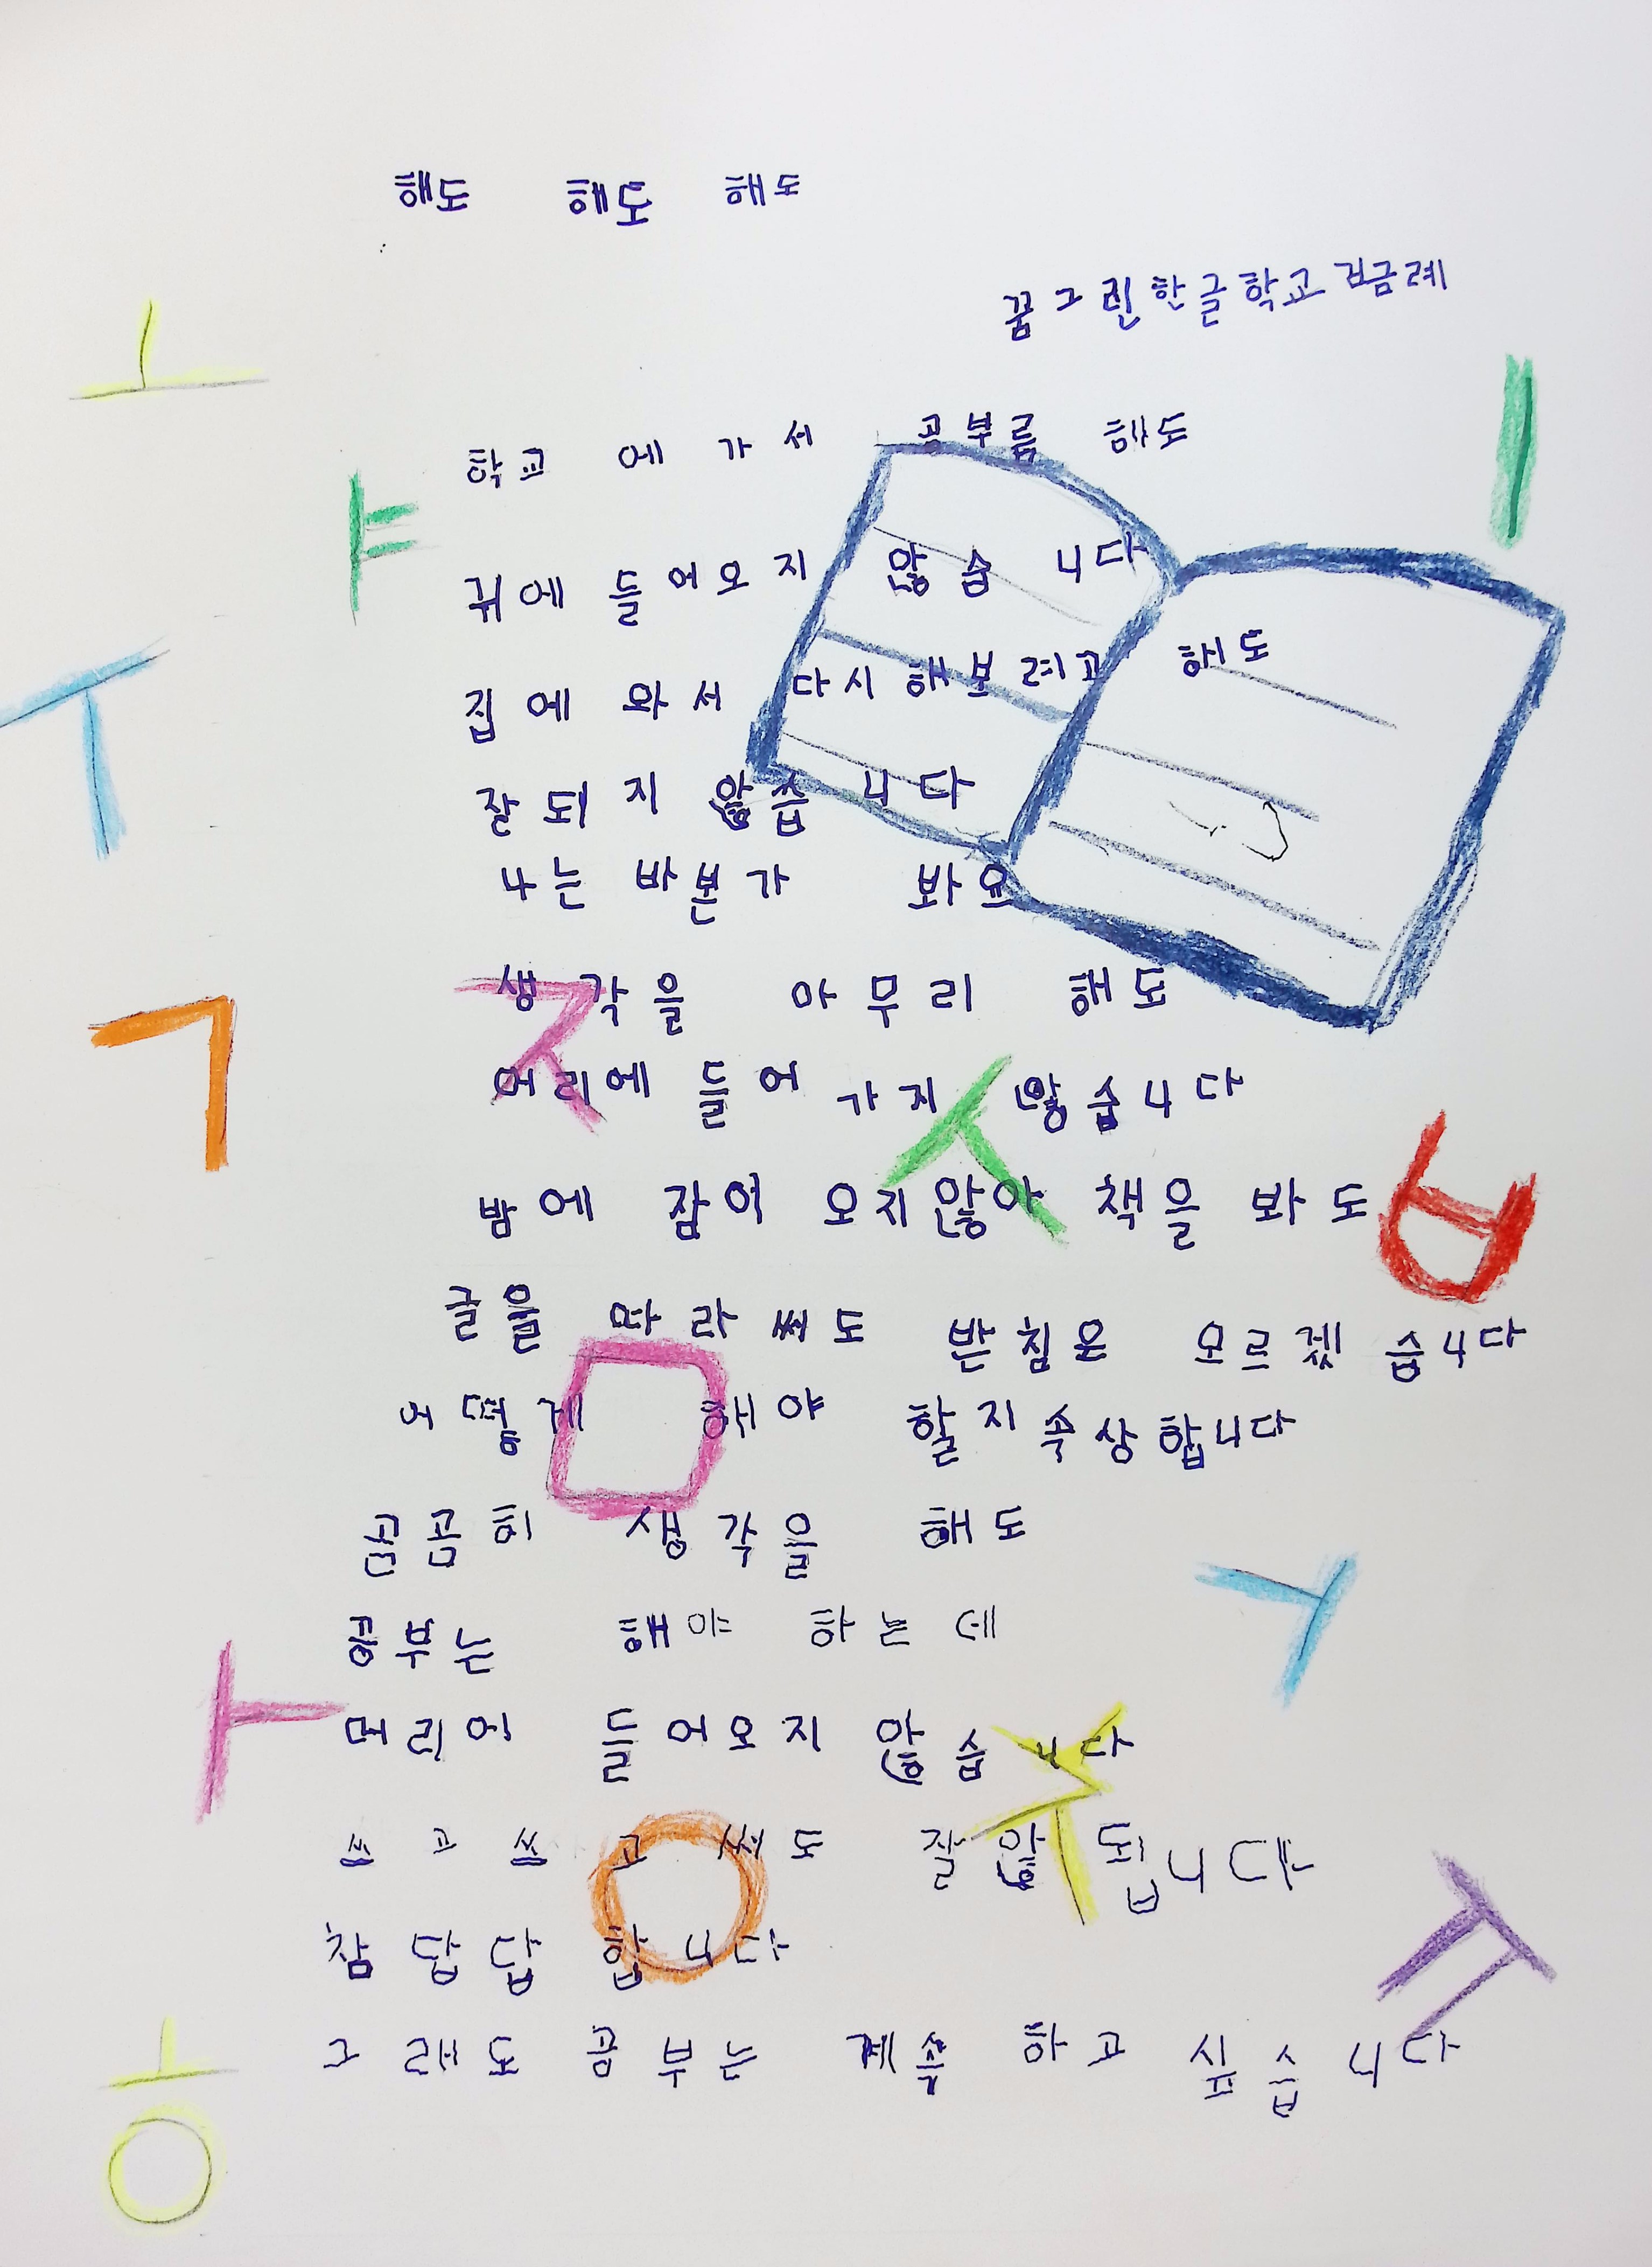 해도 해도 해도
꿈그린한글학교 김금례
학교에 가서 공부를 해도
귀에 들어오지 않습니다
집에 와서 다시 해보려고 해도
잘되지 않습니다
나는 바본가 봐요
생각을 아무리 해도
머리에 들어가지 않습니다
밤에 잠이 오지않아 책을 봐도
글을 따라써도 받침은 모르겠습니다
어떻게 해야 할지 속상합니다
곰곰히 생각을 해도
공부는 해야 하는데
머리이 들어오지 않습니다
쓰고 쓰고 써도 잘 않됩니다
참 답답합니다
그래도 공부는 계속 하고 싶습니다